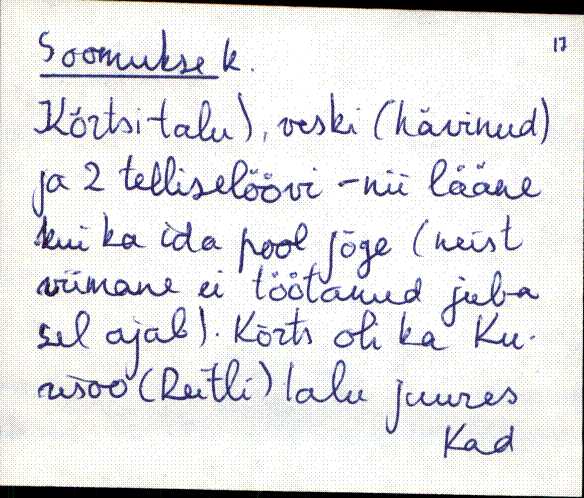 17
Soomukse k.
Kõrtsi-talu), veski (hävinud)
ja 2 telliselöövi - nii lääne
kui ka ida pool jõge (neist
viimane ei töötanud juba
sel ajal). Kõrts oli ka Ku-
usoo (Reitli) talu juures
Kad